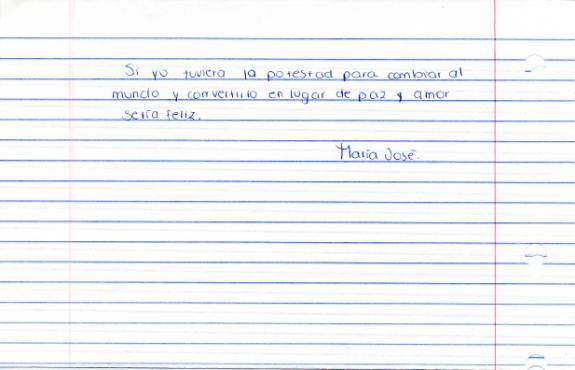 Si yo tuviera la potestad para cambiar al
mundo y convertirlo en lugar de paz y amor
sería feliz.
María José.